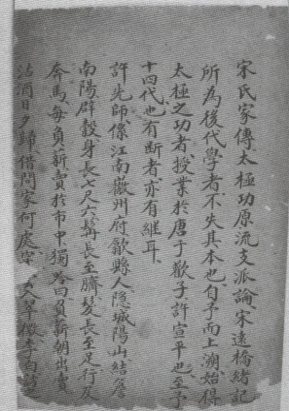 宋氏家傳太極功原流支派論宋遠橋緒記
所為後代學者不失其本也自予而上溯始得
太極之功者授業於唐于歡子許宣平也至予
十四代也有斷者亦有継耳
許先師係江南徽州府歙縣人隱城陽山結簷
南陽辟穀身長七尺六髯長至臍髮長至足行及
奔馬每負薪賣於市中獨吟曰負薪朝出賣
沽酒日夕歸借問家何處穿 翠微李白訪